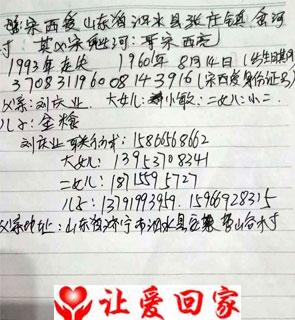 宋西爱 山东省泗水县张庄镇
村 其父宋 河 哥宋西亮
1993年走失 1960年8月14日(出生日期
370831196008143916(宋西爱身份证号)
联系:刘庆业 大女儿:小敏 二女儿:小二
儿子:金粮
刘庆业联系方式:15866568662
大女儿:13953708341
二女儿:18715595727
儿子:13791993959. 15966928315
联系地址:山东省济宁市泗水县 村
让爱回家